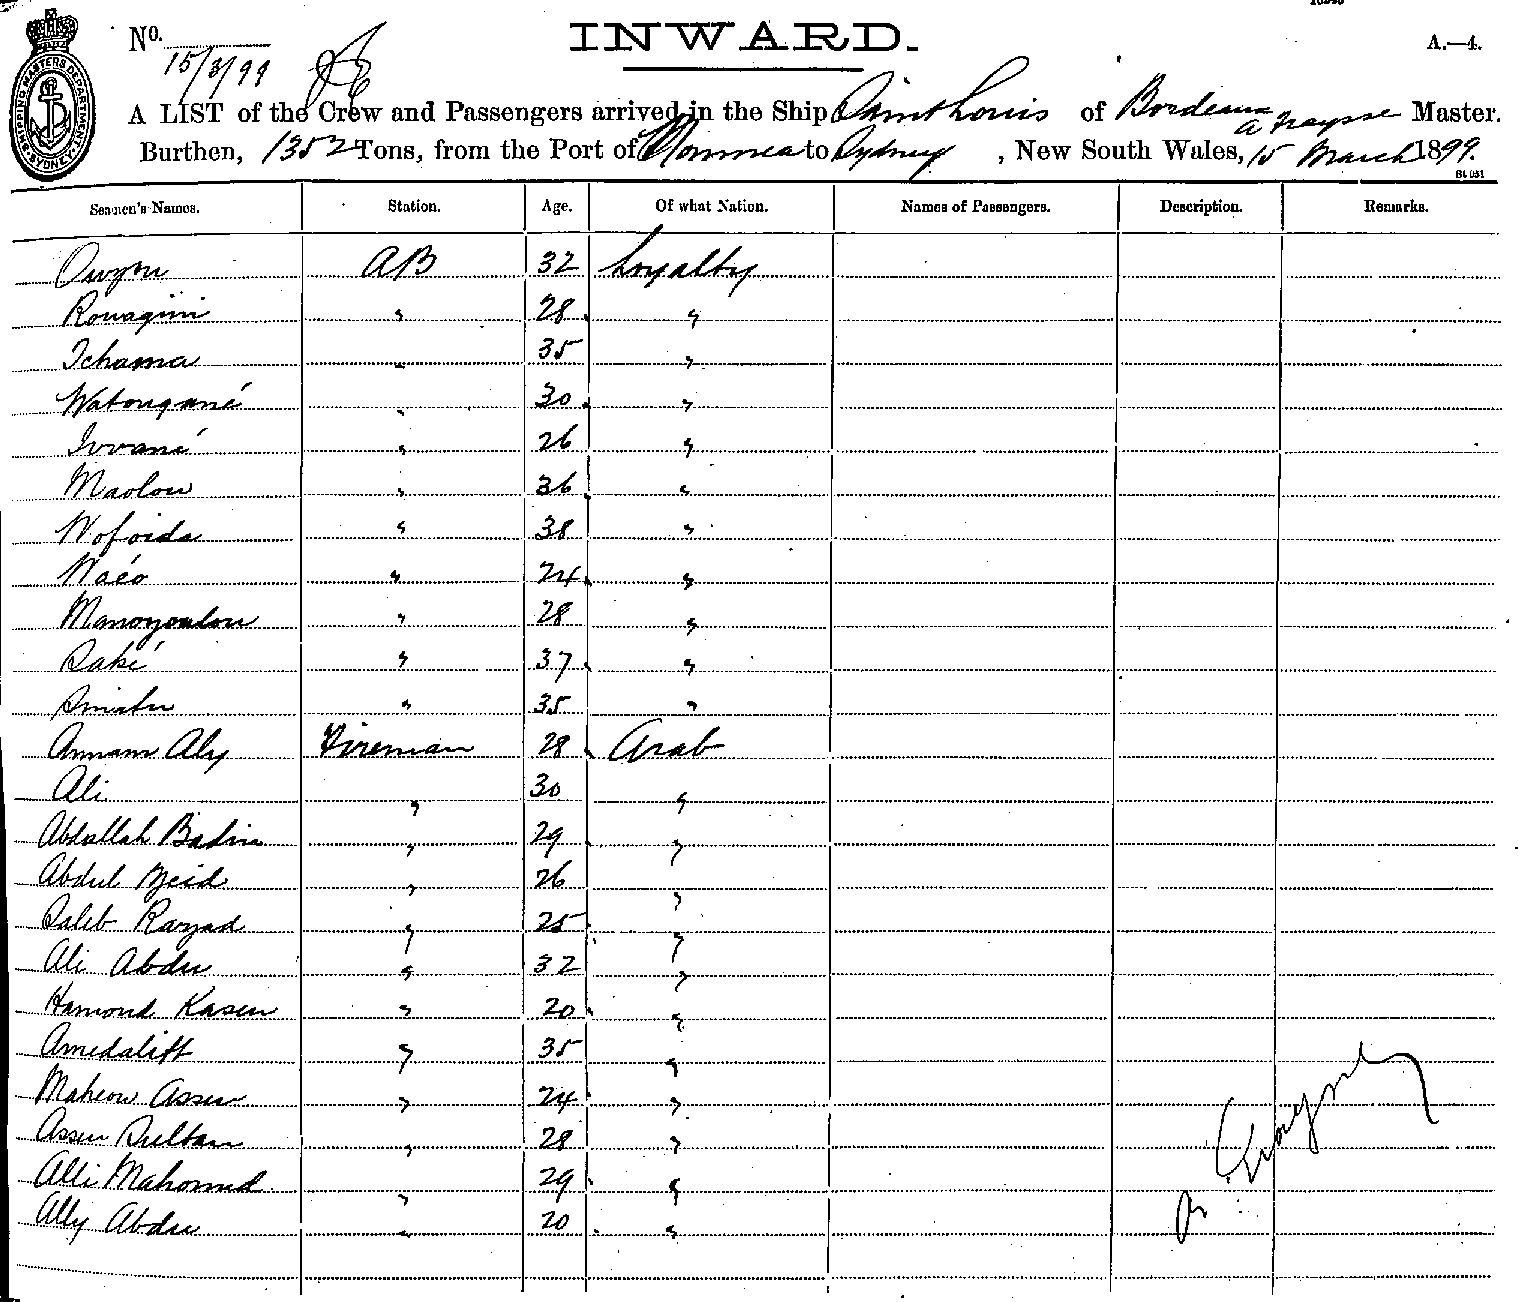 No. 15/3/99
INWARD.
A.—4.
SHIPPING MASTERS DEPARTMENT SYDNEY
A LIST of the Crew and Passengers arrived in the Ship Saint Louis of Bordeaux A Fraysse Master.
Burthen, 1352 Tons, from the Port of Noumea to Sydney, New South Wales, 15 March 1899.
Seamen's Names. Station. Age. Of what Nation. Names of Passengers. Description. Remarks.
AB 32 Loyalty
Rouagini " 28 "
Tchama " 35 "
Watougané " 30 "
" 26 "
Maolou " 36 "
Wofoida " 38 "
Waéo " 24 "
Manoyoulou " 28 "
Saké " 37 "
" 35 "
Annam Aly Fireman 28 Arab
Ali " 30 "
Abdallah Badin " 29 "
Abdul Zeid " 26 "
Saleb Razad " 25 "
Ali Abdu " 32 "
Hamond Kasem " 20 "
Amedalift " 35 "
Maheou Assen " 24 "
Assen Sultan " 28 "
Alli Mahomed " 29 "
Ally Abdu " 20 "